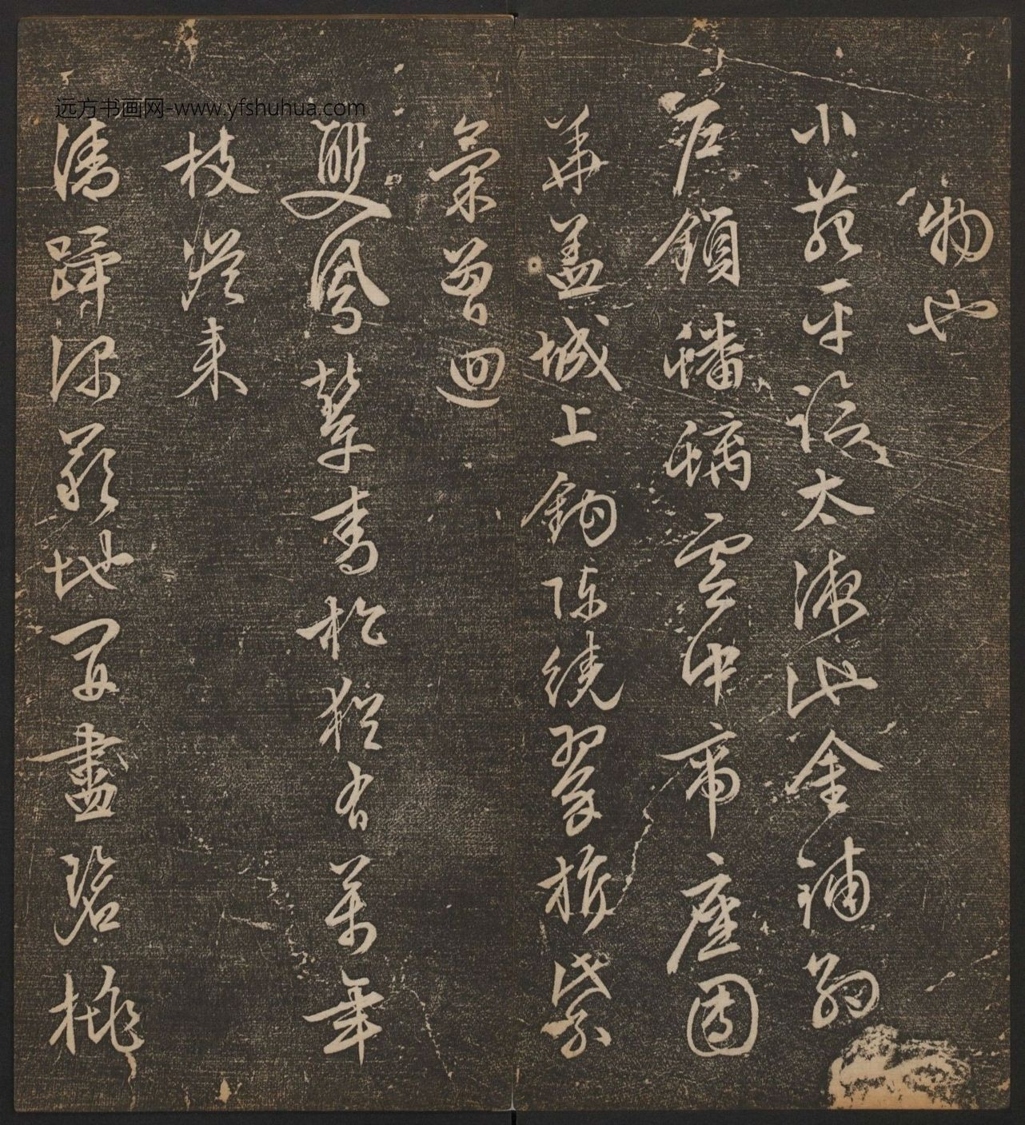 物也
小苑平臨太液池金鋪約
戶鎖蟠螭雲中帝座圍
華蓋城上鉤陳繞翠旂紫
氣曾迴
雙鳳輦青松猶有萬年
枝從来
清蹕深嚴地開盡碧桃
远方书画网-www.yfshuhua.com